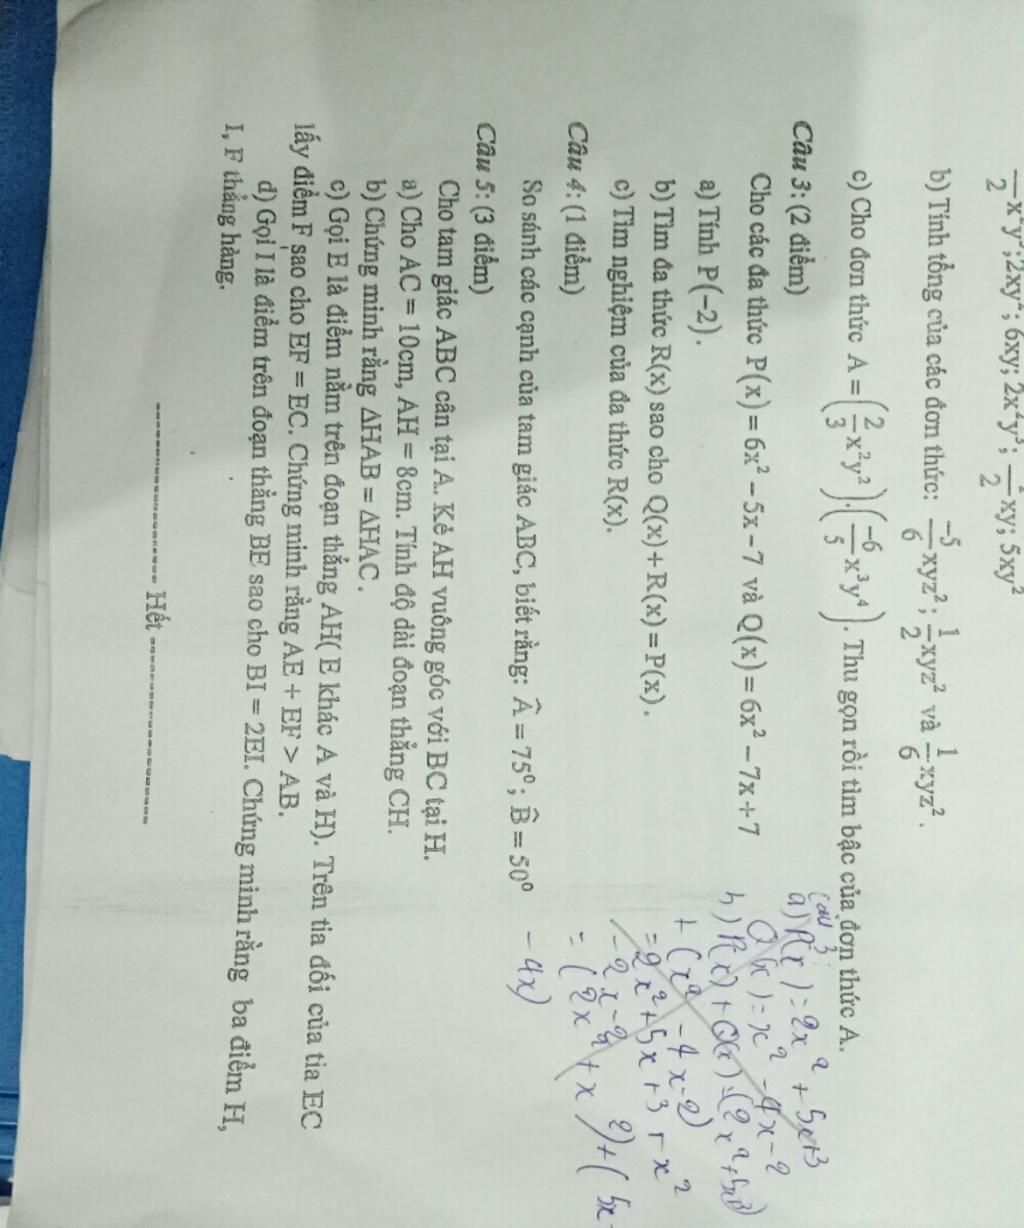 —x²y³; 2xy²; 6xy; 2x²y³; 1/2 xy; 5xy²
b) Tính tổng của các đơn thức: -5/6 xyz²; 1/2 xyz² và 1/6 xyz².
c) Cho đơn thức A = (2/3 x²y²).(-6/5 x³y⁴). Thu gọn rồi tìm bậc của đơn thức A.
Câu 3: (2 điểm)
Cho các đa thức P(x) = 6x² – 5x – 7 và Q(x) = 6x² – 7x + 7
a) Tính P(–2).
b) Tìm đa thức R(x) sao cho Q(x) + R(x) = P(x).
c) Tìm nghiệm của đa thức R(x).
Câu 4: (1 điểm)
So sánh các cạnh của tam giác ABC, biết rằng: Â = 75⁰; B̂ = 50⁰
Câu 5: (3 điểm)
Cho tam giác ABC cân tại A. Kẻ AH vuông góc với BC tại H.
a) Cho AC = 10cm, AH = 8cm. Tính độ dài đoạn thẳng CH.
b) Chứng minh rằng ΔHAB = ΔHAC.
c) Gọi E là điểm nằm trên đoạn thẳng AH( E khác A và H). Trên tia đối của tia EC
lấy điểm F sao cho EF = EC. Chứng minh rằng AE + EF > AB.
d) Gọi I là điểm trên đoạn thẳng BE sao cho BI = 2EI. Chứng minh rằng ba điểm H,
I, F thẳng hàng.
---------------------- Hết ----------------------
Câu 3
a) P(x) = 2x² + 5x+3
Q(x) = x² - 4x - 2
b) P(x) + Q(x) = (2x² + 5x+3)
+ (x² - 4x - 2)
= 2x² + 5x + 3 + x²
- 4x)